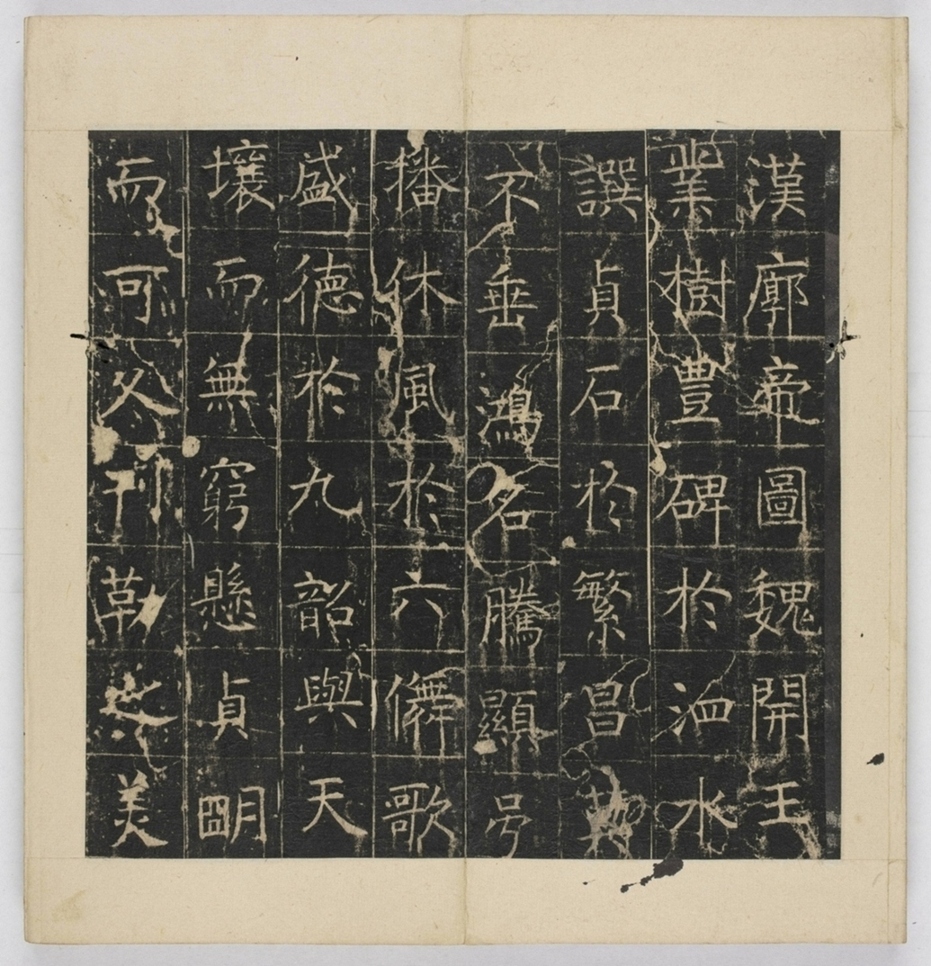 漢廓帝圖魏開王
業樹豐碑於泗水
譔貞石於繁昌莫
不垂鴻名騰顯号
播休風於六儛歌
盛德於九韶與天
壤而無窮懸貞朙
而可久刊勒之美